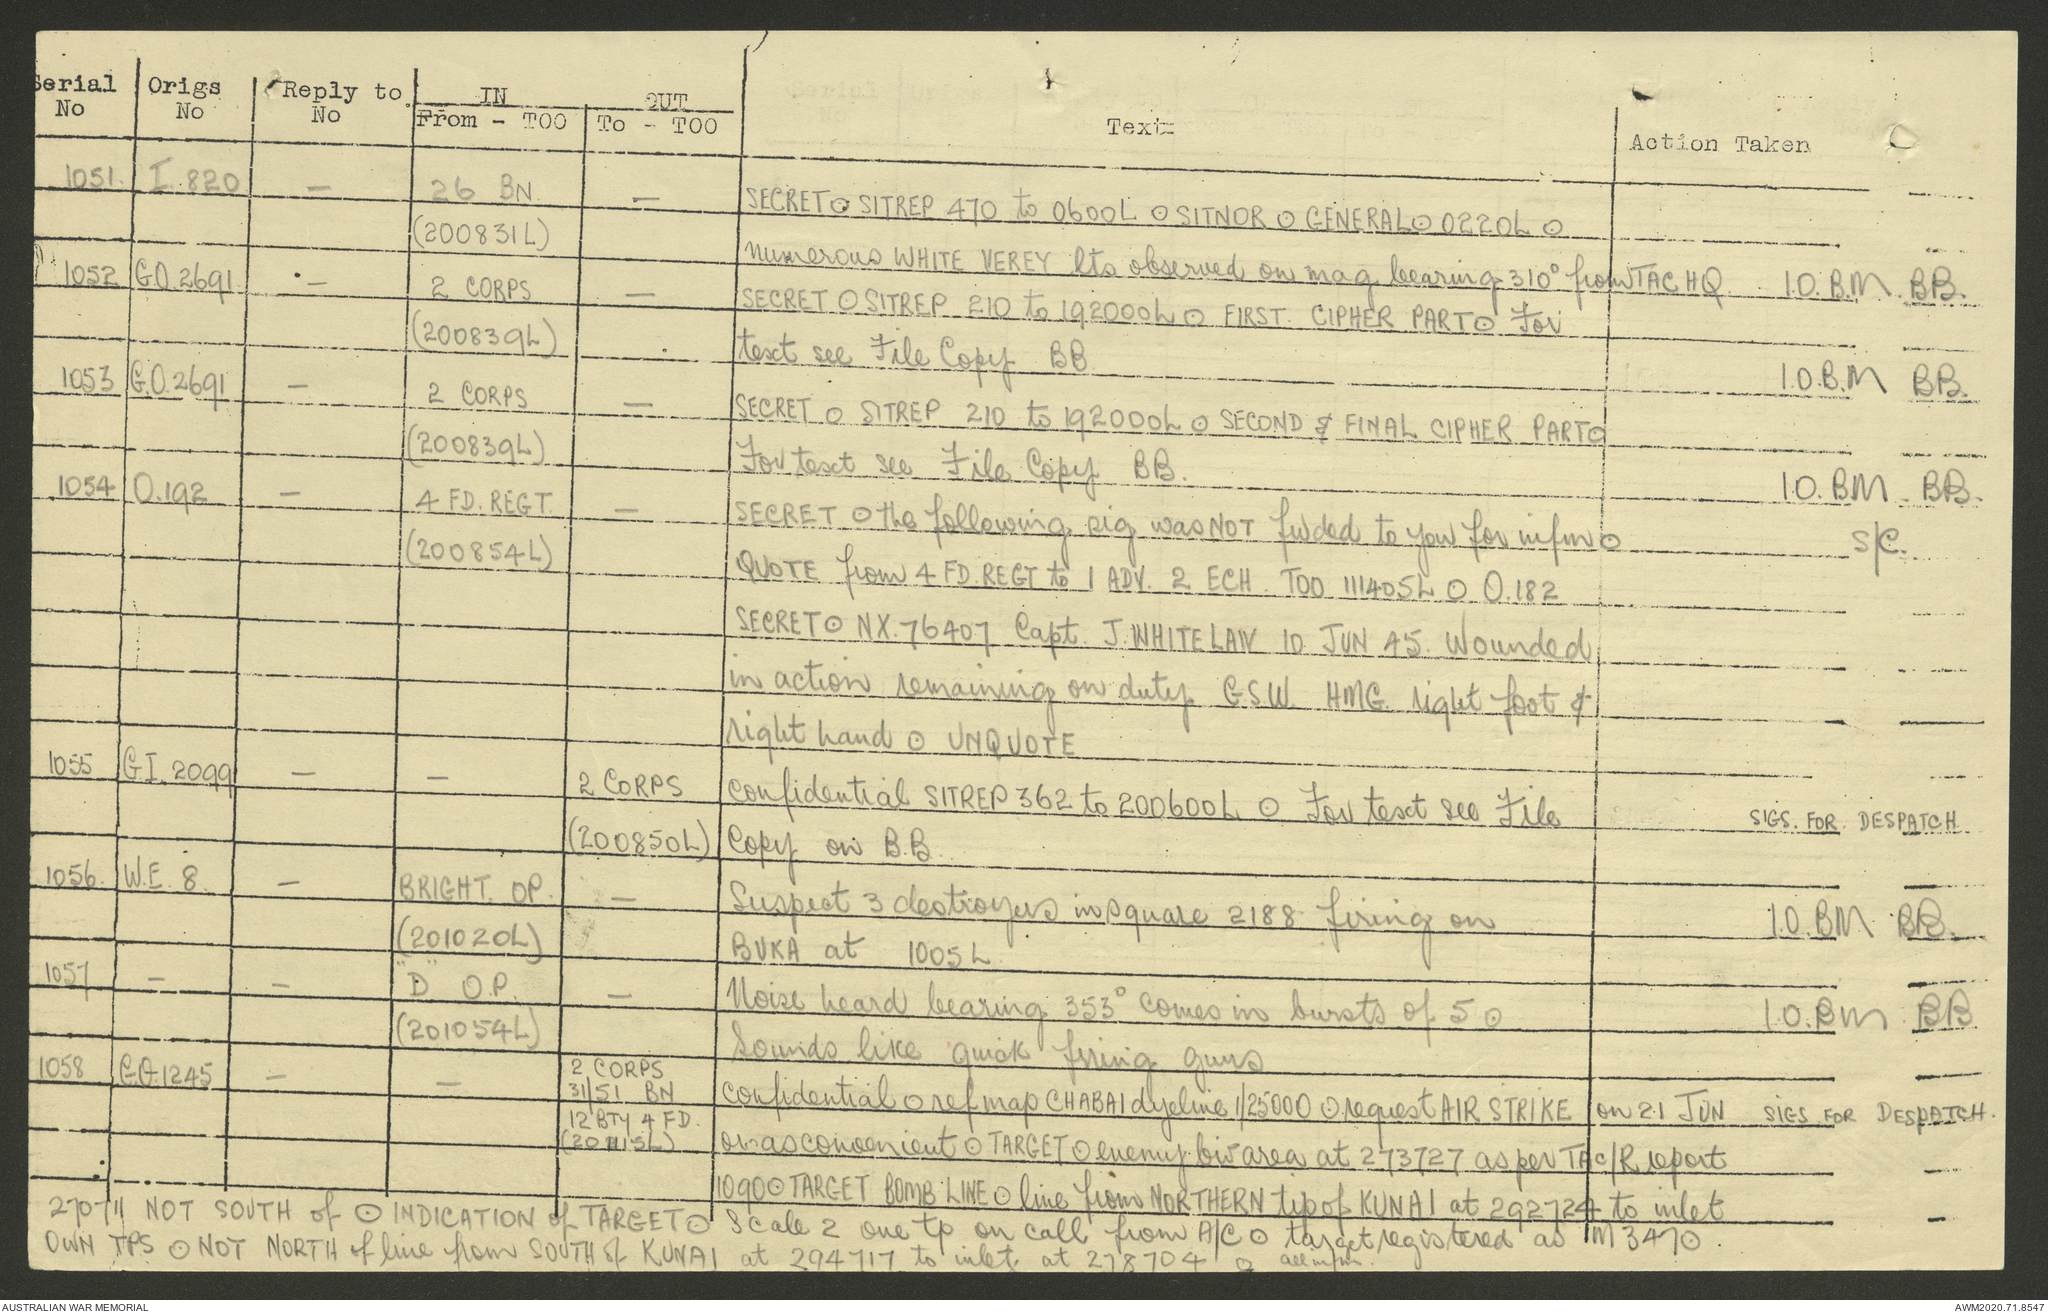 Serial No | Origs No | Reply to No | IN From - TOO | OUT To - TOO | Text | Action Taken
1051. | I. 820 | — | 26 BN. | — | SECRET ⊙ SITREP 470 to 0600L ⊙ SITNOR ⊙ GENERAL ⊙ 0220L ⊙
(200831L) | numerous WHITE VEREY lts observed on mag bearing 310° from TAC HQ | I.O. B.M. BB.
1052 | G.O. 2691 | — | 2 CORPS | — | SECRET ⊙ SITREP 210 to 192000L ⊙ FIRST CIPHER PART ⊙ For
(200839L) | text see File Copy BB | I.O. B.M BB.
1053 | G.O. 2691 | — | 2 CORPS | — | SECRET ⊙ SITREP 210 to 192000L ⊙ SECOND & FINAL CIPHER PART ⊙
(200839L) | For text see File Copy BB. | I.O. BM. BB.
1054 | O.192 | — | 4 FD. REGT. | — | SECRET ⊙ the following sig was NOT fwded to you for infm ⊙ | S/C.
(200854L) | QUOTE from 4 FD. REGT to 1 ADV. 2 ECH. TOO 111405L ⊙ O.182
SECRET ⊙ NX.76407 Capt. J. WHITELAW 10 JUN 45. Wounded
in action remaining on duty G.S.W. HMG. right foot &
right hand ⊙ UNQUOTE
1055 | GI. 2099 | — | — | 2 CORPS | Confidential SITREP 362 to 200600L ⊙ For text see File | SIGS. FOR DESPATCH
(200850L) | Copy on B.B.
1056. | W.E. 8. | — | BRIGHT OP. | — | Suspect 3 destroyers in square 2188 firing on | I.O. BM BB.
(201020L) | BUKA at 1005L
1057 | — | — | "D" O.P. | — | Noise heard bearing 353° comes in bursts of 5 ⊙ | I.O. BM BB
(201054L) | Sounds like quick firing guns
1058 | G.O.1245 | — | — | 2 CORPS
31/51 BN | Confidential ⊙ ref map CHABAI dyeline 1/25000 ⊙ request AIR STRIKE on 21 JUN | SIGS. FOR DESPATCH.
12 BTY 4 FD.
(201115L) | or as convenient ⊙ TARGET ⊙ enemy biv area at 273727 as per TAC/R report
1090 ⊙ TARGET BOMB LINE ⊙ line from NORTHERN tip of KUNAI at 292724 to inlet
270711 NOT SOUTH of ⊙ INDICATION of TARGET ⊙ Scale 2 one tp on call from A/C ⊙ target registered as M3470.
OWN TPS ⊙ NOT NORTH of line from SOUTH of KUNAI at 294717 to inlet at 278704 ⊙ all infm.
AUSTRALIAN WAR MEMORIAL
AWM2020.71.8547